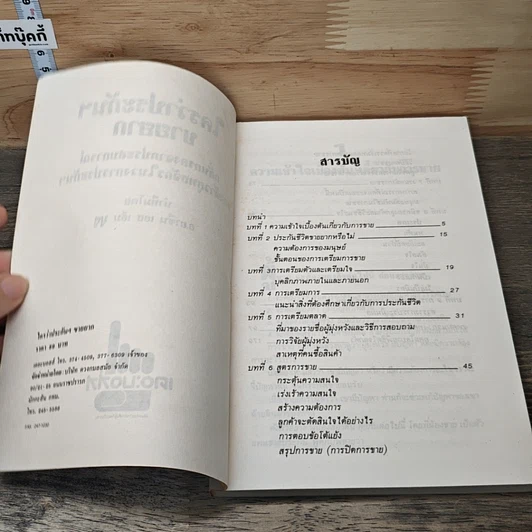 ท็กบุ๊คกี้
ใครว่าประกันฯ
ขายยาก
ใครว่าประกันฯ ขายยาก
ราคา 60 บาท
สารบัญ
บทนำ
บทที่ 1 ความเข้าใจเบื้องต้นเกี่ยวกับการขาย 5
บทที่ 2 ประกันชีวิตขายยากหรือไม่ 15
ความต้องการของมนุษย์
ขั้นตอนของการเตรียมการขาย
บทที่ 3การเตรียมตัวและเตรียมใจ 19
บุคลิกภาพภายในและภายนอก
บทที่ 4 การเตรียมการ 27
แนะนำสิ่งที่ต้องศึกษาเกี่ยวกับการประกันชีวิต
บทที่ 5 การเตรียมตลาด 31
ที่มาของรายชื่อผู้มุ่งหวังและวิธีการสอบถาม
การวิจัยผู้มุ่งหวัง
สาเหตุที่คนซื้อสินค้า
บทที่ 6 สูตรการขาย 45
กระตุ้นความสนใจ
เร่งเร้าความสนใจ
สร้างความต้องการ
ลูกค้าจะตัดสินใจได้อย่างไร
การตอบข้อโต้แย้ง
สรุปการขาย (การปิดการขาย)